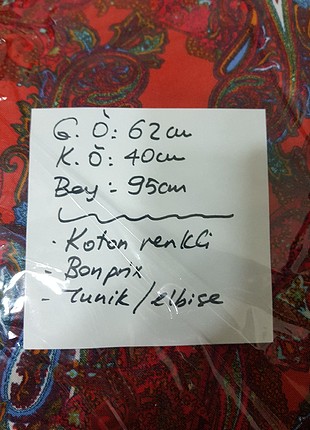 G. Ö: 62cm
K. Ö: 40cm
Boy: 95cm
· Koton renkli
- Bonprix
- Tunik/elbise